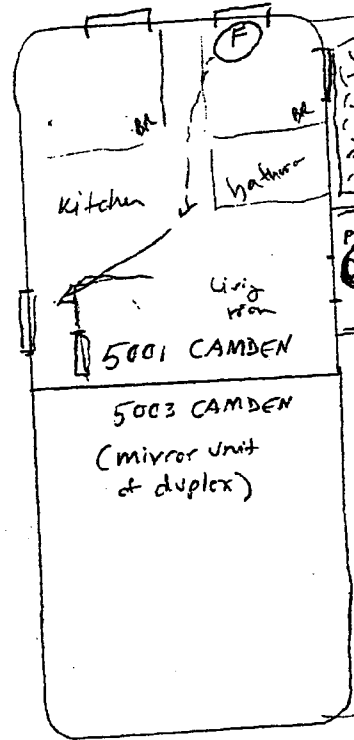 F
BR
BR
Kitchen
bathroom
living
room
5001 CAMDEN
5003 CAMDEN
(mirror unit
of duplex)
P